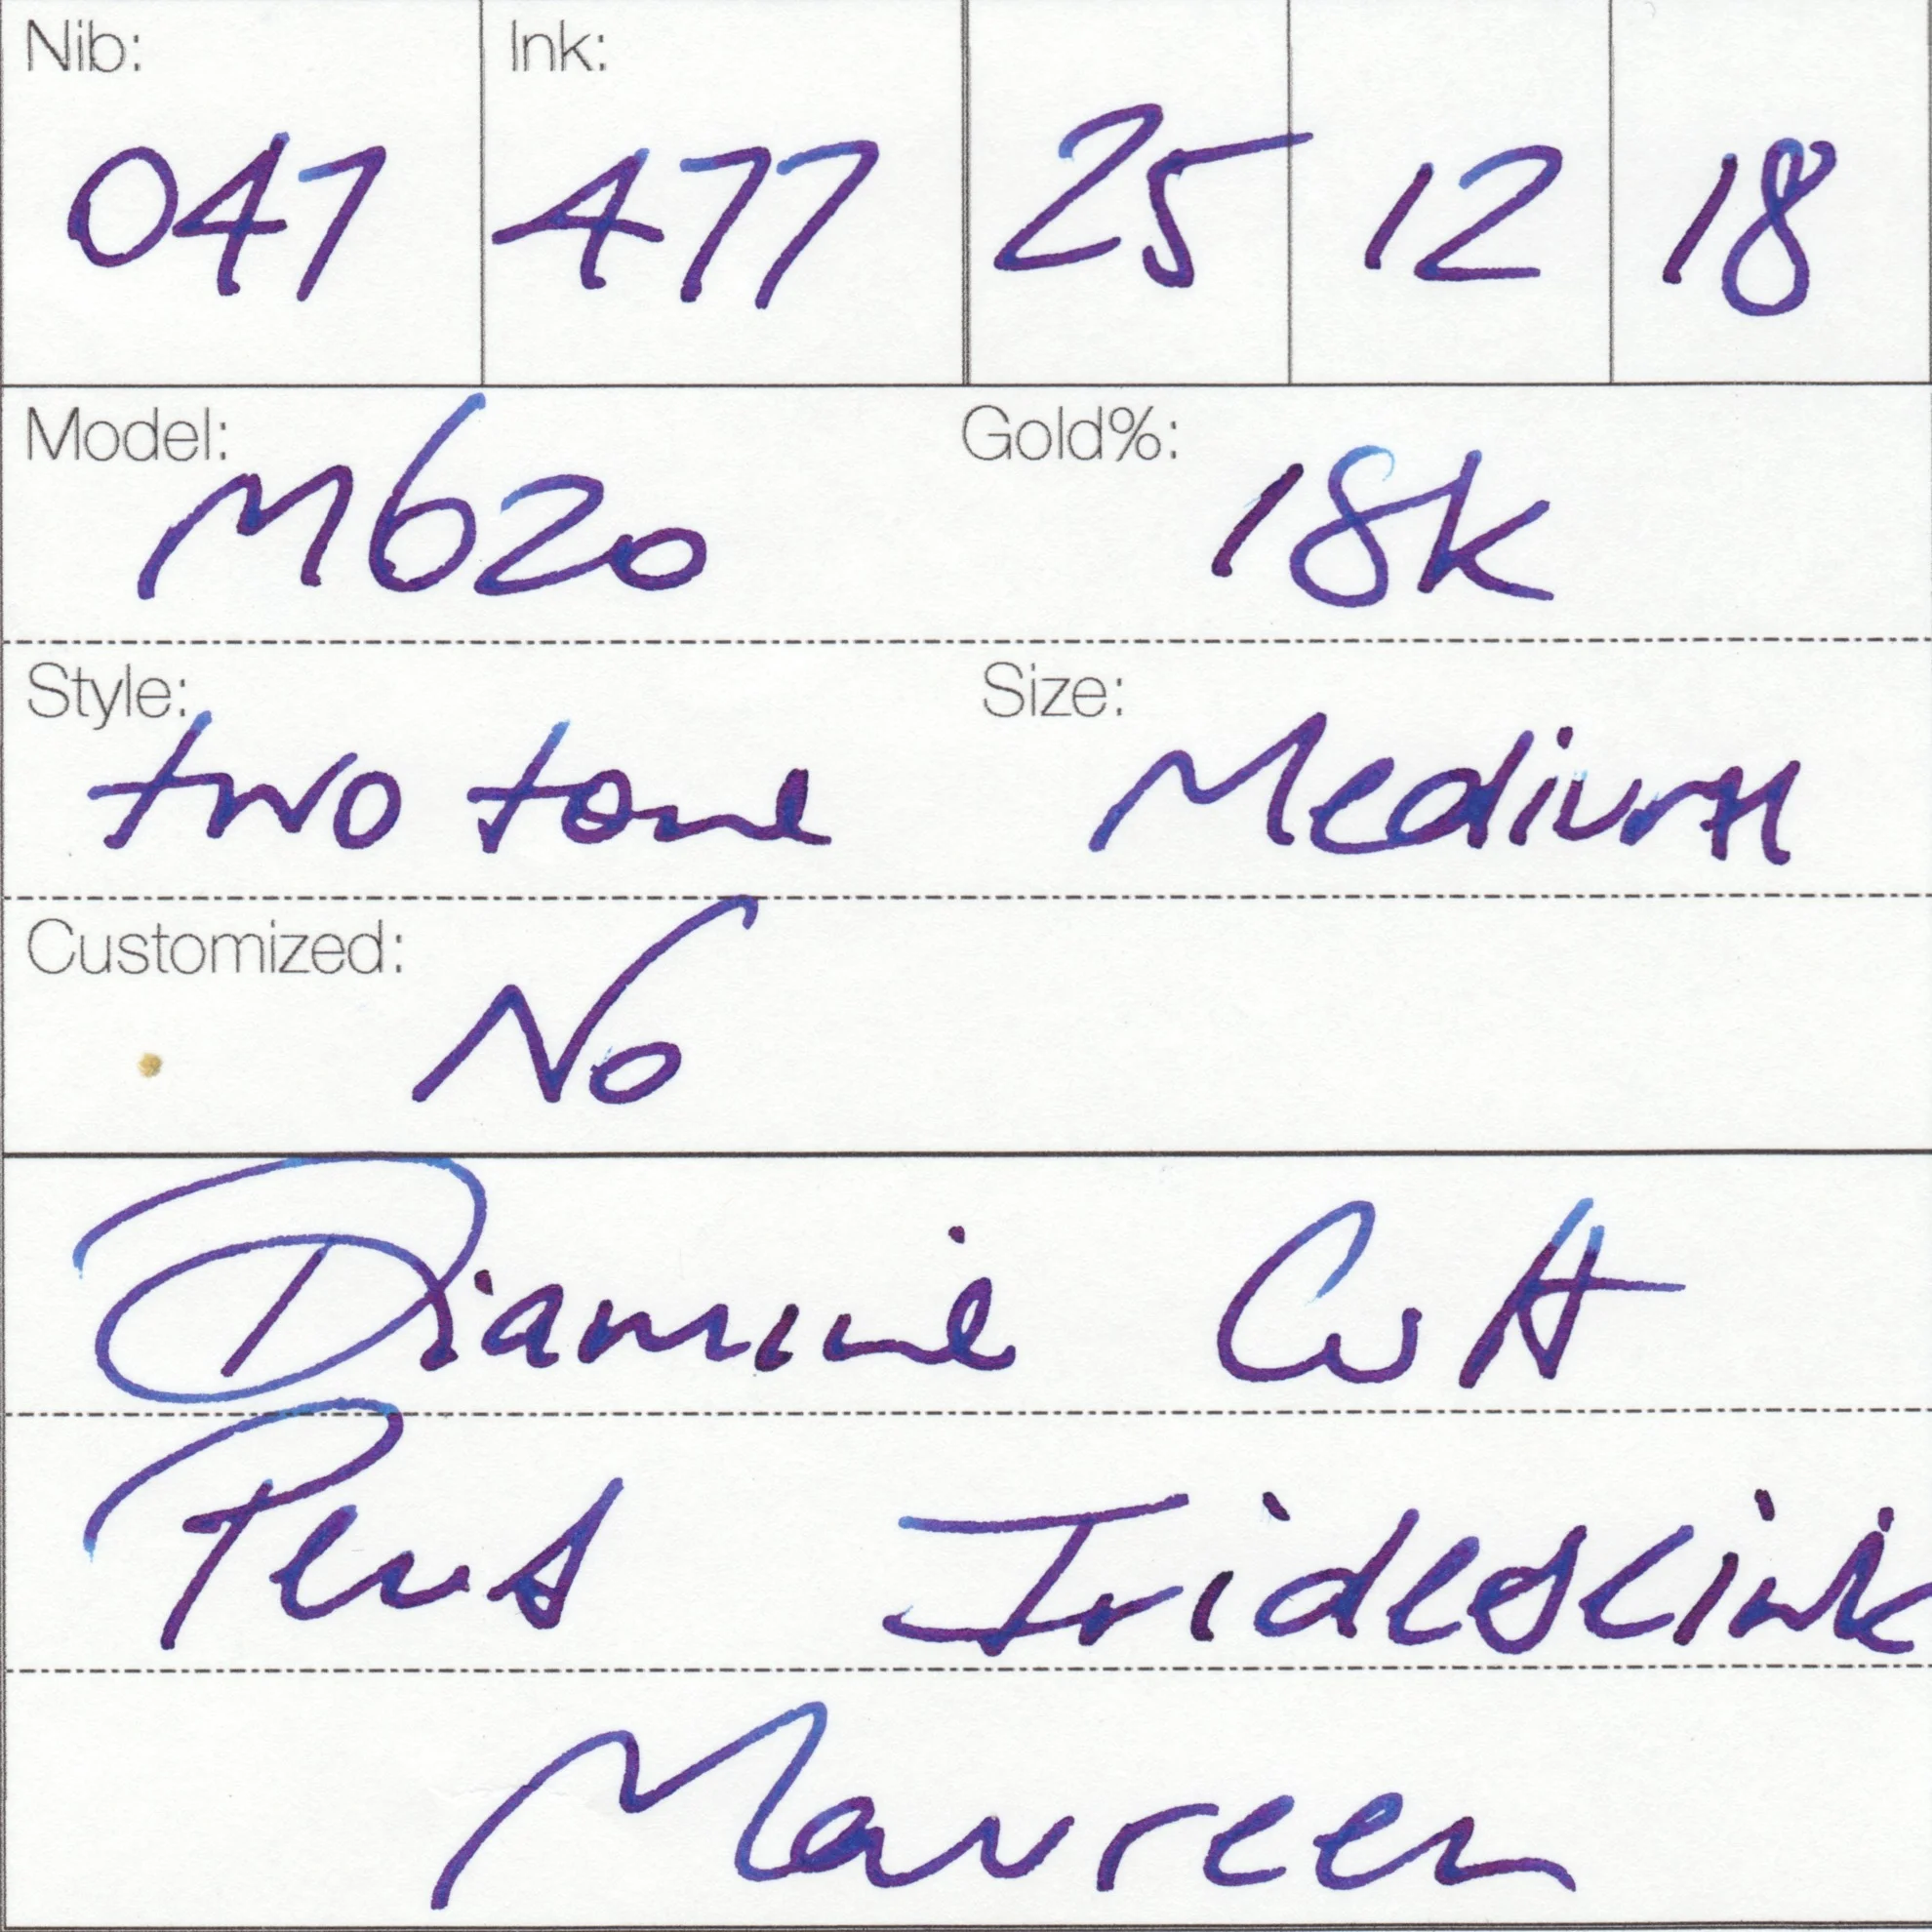 Nib: Ink:
047 477 25 12 18
Model: M620 Gold%: 18K
Style: two tone Size: Medium
Customized: No
Diamine Cult
Pens Iridescink
Maureen